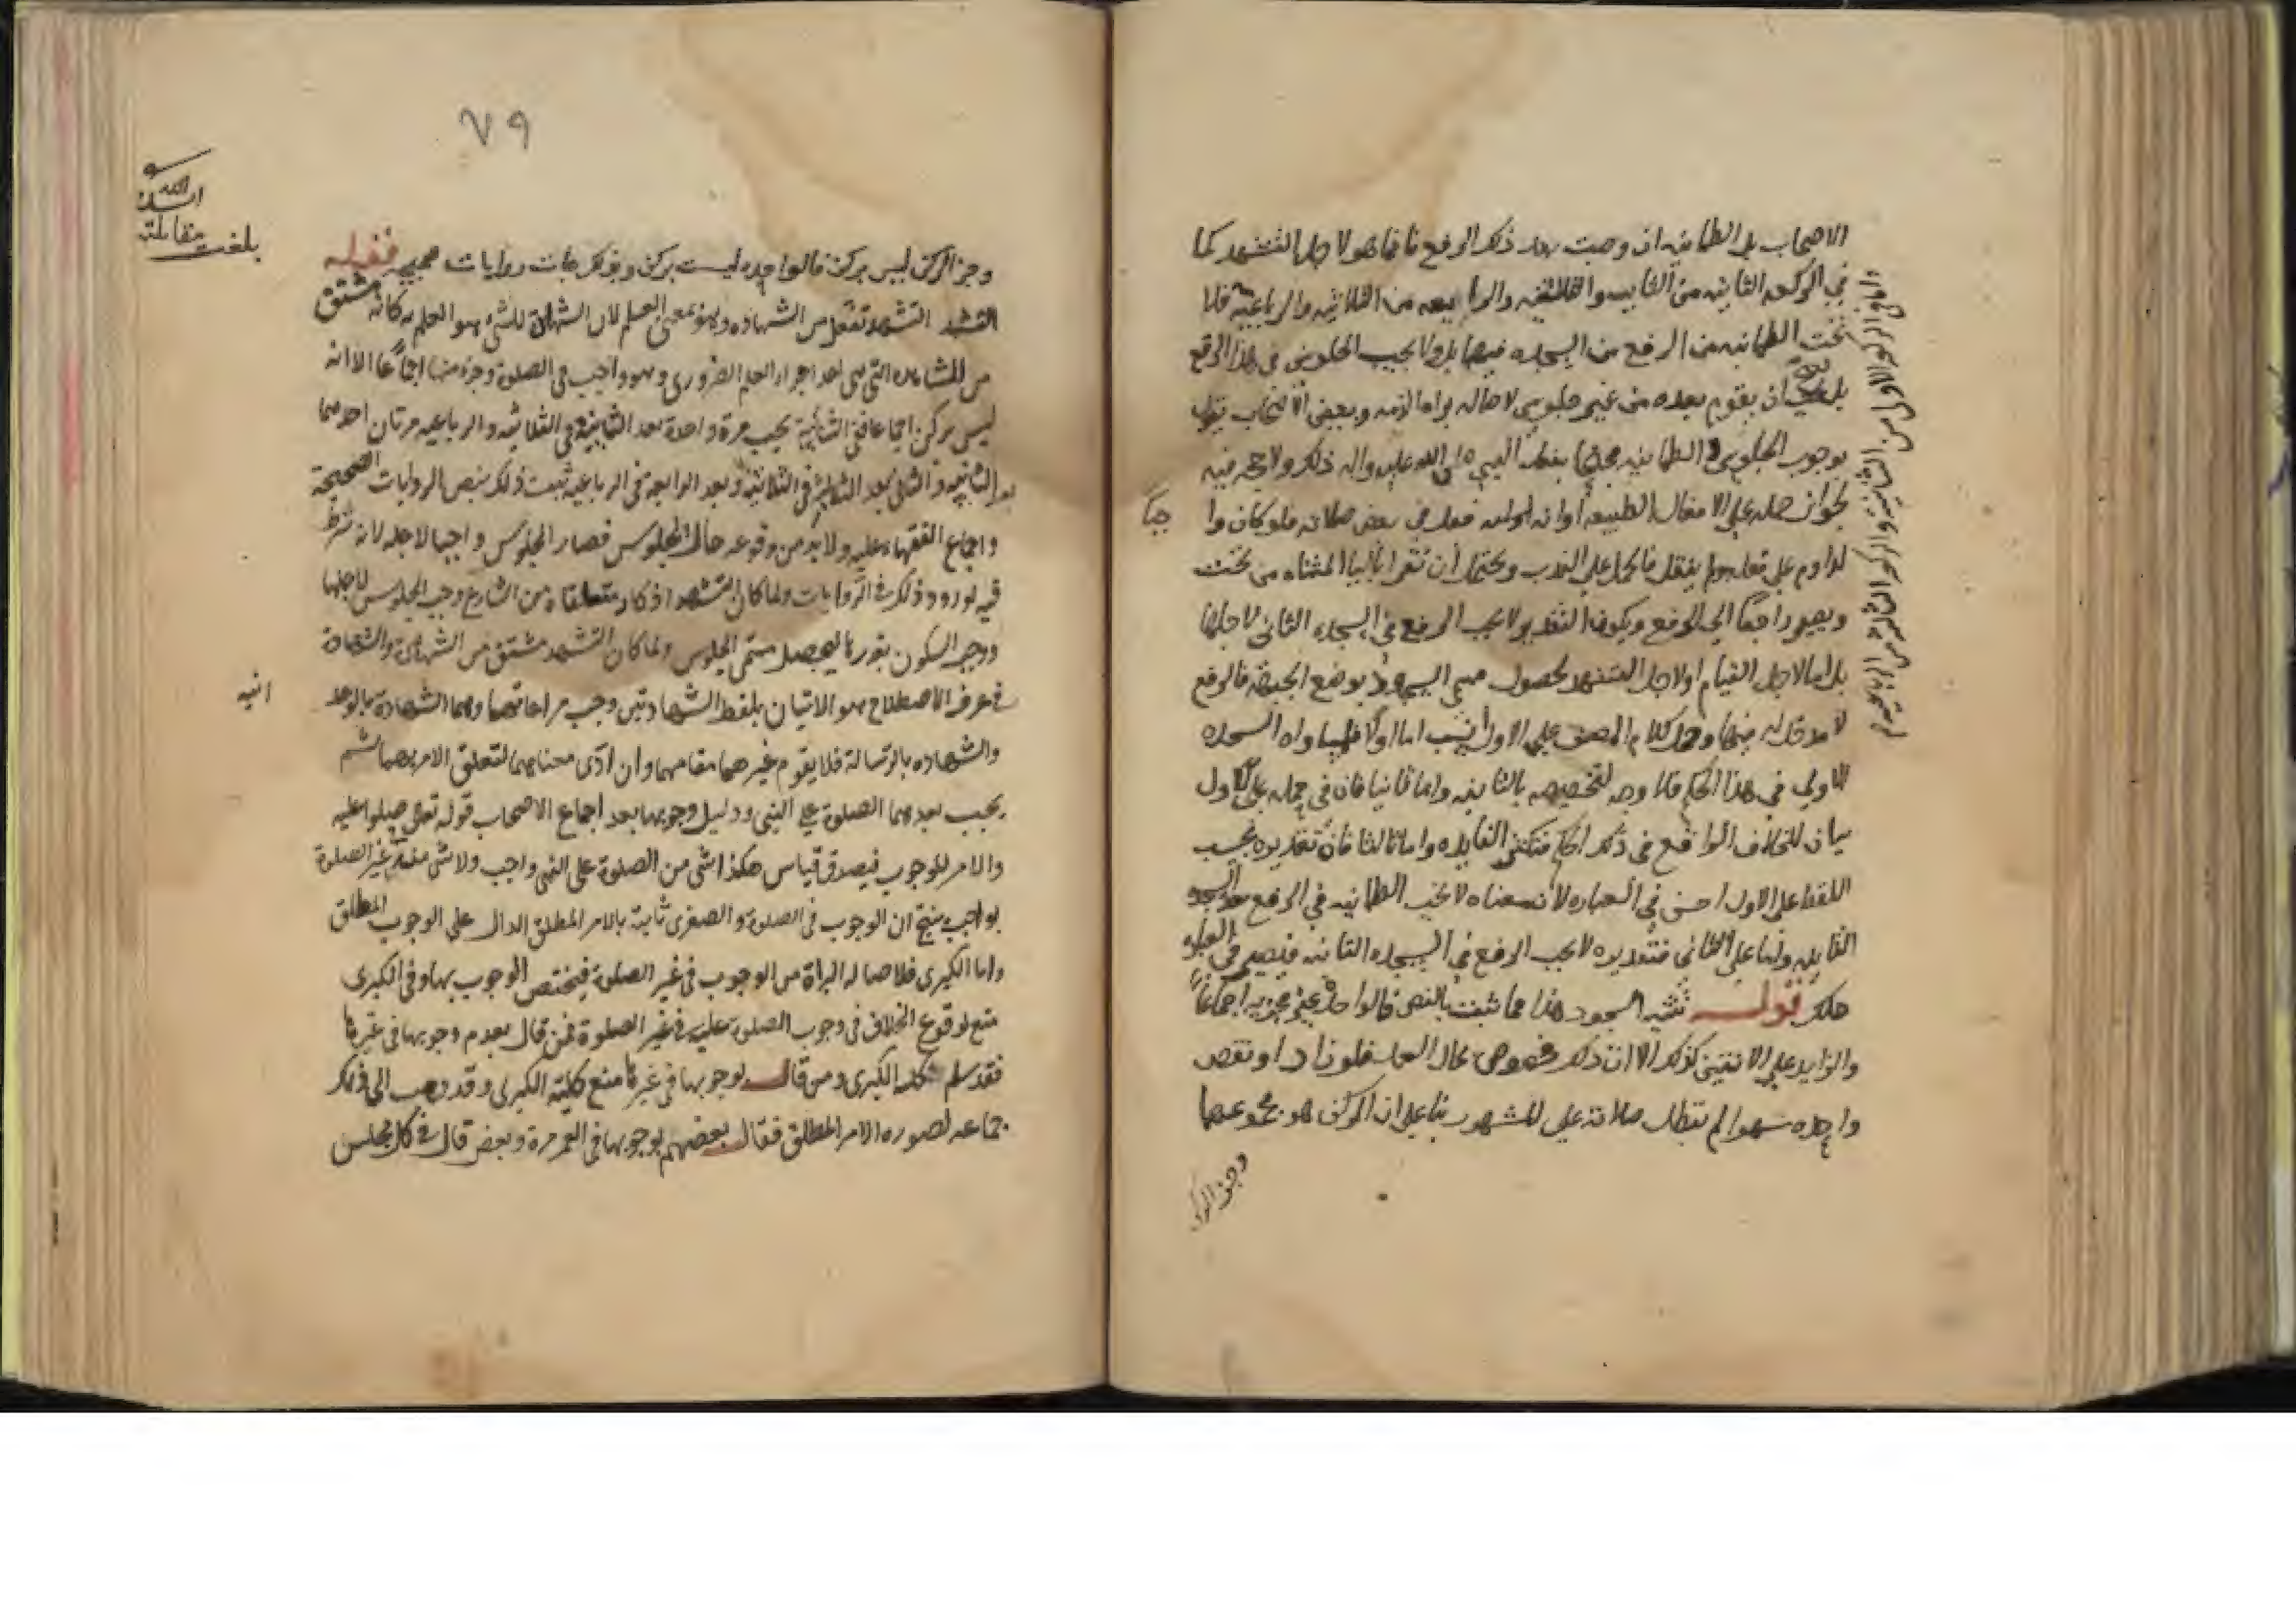 الاصحاب بل الطمانينه ان وجبت بعد ذلك الرفع فانما هو لاجل التشهد كما
في الركعه الثانيه من الثنائيه والثلاثيه والرابعه من الثلاثيه والرباعيه فلا
تجب الطمانينه من الرفع من السجده فيها بل ولا يجب الجلوس في هذا الرفع
بل ان يقوم بعده من غير جلوس لاصاله براه الذمه وبعض الاصحاب يقول
بوجوب الجلوس و الطمانينه محتجا بفعل النبي صلى الله عليه واله ذلك ولا حجه فيه
لجواز حمله على الافعال الطبيعه او انه فعله في بعض صلاته فلو كان وا
جبا
لداوم على فعله ولم ينقل فالحمل على الندب ويحتمل أن تقرا بالياء المثناه من تحت
ويصير راجعا الى الرفع ويكون التقدير ولا يجب الرفع في السجده الثاني لاجلها
بل اما لاجل القيام او لاجل التشهد لحصول مسمى السجود بوضع الجبهه فالرفع
لا مدخل له فيها وحمل كلام المصنف على الاول أنسب اما اولا فلمساواه السجده
الاولى في هذا الحكم فلا وجه لتخصيصه بالثانيه واما ثانيا فان في حمله على الاول
بيان للخلاف الواقع في ذلك الحكم فتكثر الفايده واما ثالثا فان تقديره بحسب
اللفظ على الاول احسن في العباره لان معناه لا تجب الطمانينه في الرفع من السجده
الثانيه واما على الثاني فتقديره لا يجب الرفع في السجده الثانيه فيصير في العباره
قوله تثنيه السجود هذا مما ثبت بالنص فالواحده غير مجزيه اجماعا
والزايد على الاثنتين كذلك الا ان ذلك مخصوص بحال العمد فلو زاد او نقص
واحده سهوا لم تبطل صلاته على المشهور بناء على ان الركن هو مجموعهما
وجزء الركن
الاولى و الركعه الاولى من الثنائيه والركعه الثالثه من الرباعيه
٧٩
بلغت مقابلته
ان شاء الله
وجزء الركن ليس بركن فالواحده ليست بركن وبذلك جاءت روايات صحيحه قوله
التشهد التشهد تفعل من الشهاده وهو بمعنى العلم لان الشهادة للشيء هو العلم به كانه مشتق
من المشاهده التي هي احد اجزاء العلم الضروري وهو واجب في الصلوة وجزء منها اجماعا الا انه
ليس بركن اجماعا ففي الثنائية يجب مرة واحدة بعد الثانية وفي الثلاثيه والرباعيه مرتان احدهما
بعد الثانيه والثاني بعد الثالثة في الثلاثيه وبعد الرابعه في الرباعيه ثبت ذلك بنص الروايات الصحيحة
واجماع الفقهاء عليه ولا بد من وقوعه حالة الجلوس فصار الجلوس واجبا لاجله لانه شرط
فيه لورود ذلك في الروايات ولما كان التشهد اذكار متعلقاة من الشارع وجب الجلوس لاجلها
ووجب السكون بقدر ما يحصل مسمى الجلوس ولما كان التشهد مشتق من الشهادة والشهادة
في عرف الاصطلاح هو الاتيان بلفظ الشهادتين وجب مراعاتهما وهما الشهادة بالوحد
انيه
والشهاده بالرسالة فلا يقوم غيرهما مقامهما وان ادى معناهما لتعلق الامر بهما ثم
يجب بعدهما الصلوة على النبي ودليل وجوبها بعد اجماع الاصحاب قوله تعالى صلوا عليه
والامر للوجوب فيصدق قياس هكذا شئ من الصلوة على النبي واجب ولا شئ منها في غير الصلوة
بواجب ينتج ان الوجوب في الصلوة والصغرى ثابتة بالامر المطلق الدال على الوجوب المطلق
واما الكبرى فلاصاله البراة من الوجوب في غير الصلوة فيختص الوجوب بها وفي الكبرى
منع لوقوع الخلاف في وجوب الصلوة عليه في غير الصلوة فمن قال بعدم وجوبها في غيرها
فقد سلم كليه الكبرى ومن قال بوجوبها في غيرها منع كلية الكبرى وقد ذهب الى ذلك
جماعه لصوره الامر المطلق فقال بعضهم بوجوبها في العمر مرة وبعض قال في كل مجلس